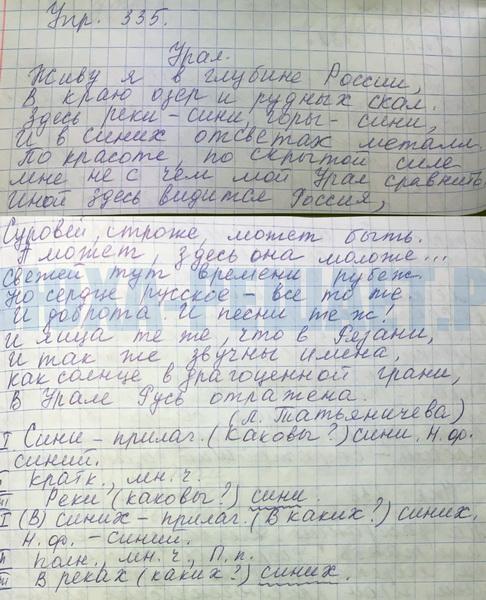 Упр. 335.
Урал.
Живу я в глубине России,
В краю озер и рудных скал.
Здесь реки - сини, горы - сини,
И в синих отсветах металл.
По красоте, по скрытой силе
мне не с чем мой Урал сравнить
Иной здесь видится Россия,
Суровей, строже, может быть.
А может, здесь она моложе...
Свежей тут времени рубеж.
Но сердце русское - все то же.
И доброта. И песни те ж!
И лица те же, что в Рязани,
И так же звучны имена,
как солнце в драгоценной грани,
В Урале Русь отражена.
(Л. Татьяничева)
I Сини - прилаг. (Каковы?) сини, Н.ф.
синий.
Кратк., мн.ч.
III Реки (каковы?) сини.
I (В) синих - прилаг. (В каких?) синих,
н.ф. - синий.
II Полн., мн.ч., П.п.
III В реках (каких?) синих.